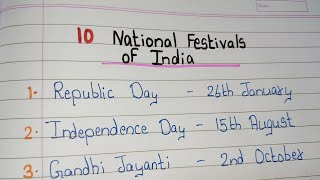 10 National Festivals
of India
1. Republic Day - 26th January
2. Independence Day - 15th August
3. Gandhi Jayanti - 2nd October